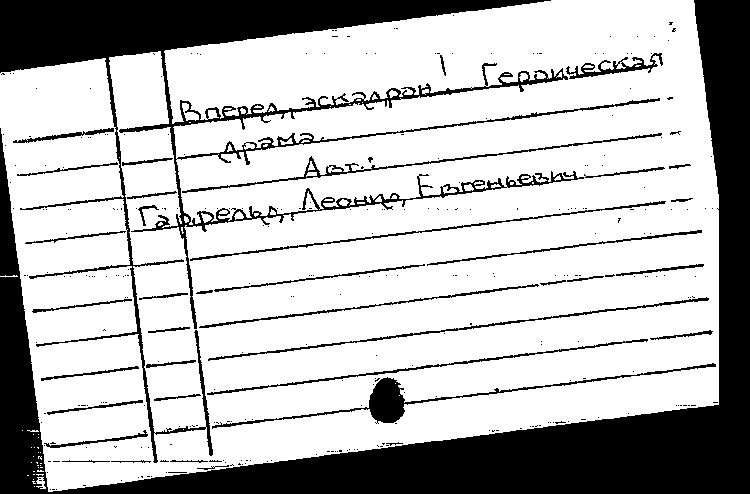 Вперед, эскадрон! Героическая
драма.
Авт.:
Гаррельд, Леонид Евгеньевич